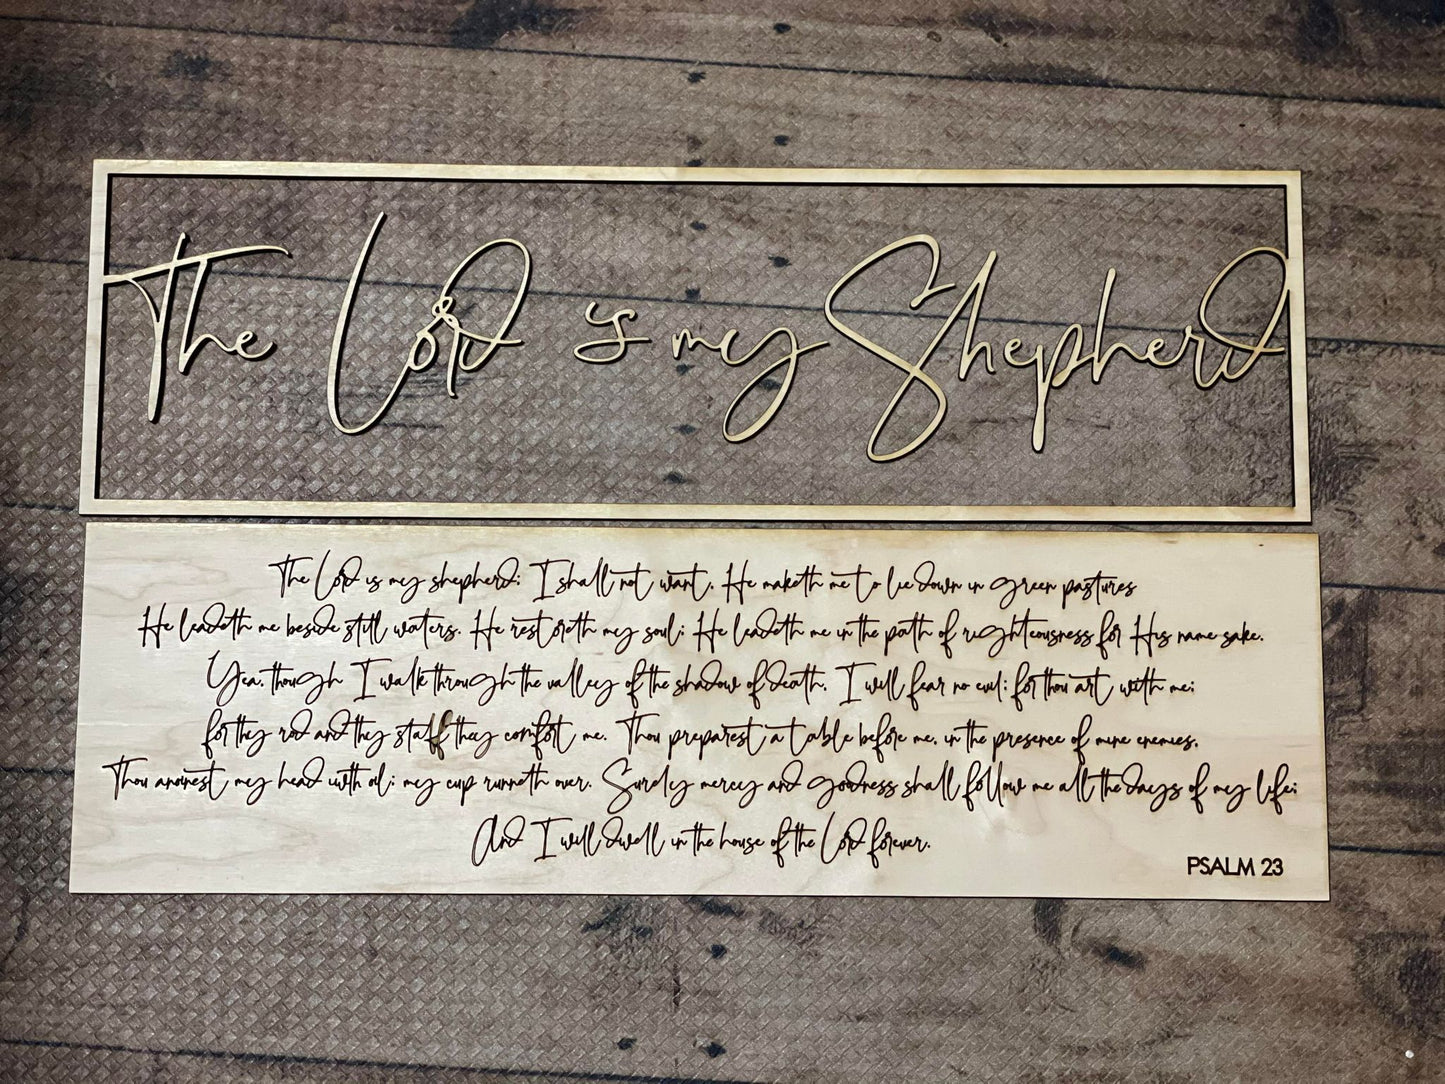 The Lord is my Shepherd
The Lord is my shepherd; I shall not want. He maketh me to lie down in green pastures
He leadeth me beside still waters. He restoreth my soul; He leadeth me in the path of righteousness for His name sake.
Yea, though I walk through the valley of the shadow of death, I will fear no evil; for thou art with me;
for they rod and they staff they comfort me. Thou preparest a table before me, in the presence of mine enemies,
Thou anoinest my head with oil; my cup runneth over. Surely mercy and goodness shall follow me all the days of my life;
And I will dwell in the house of the Lord forever.
PSALM 23